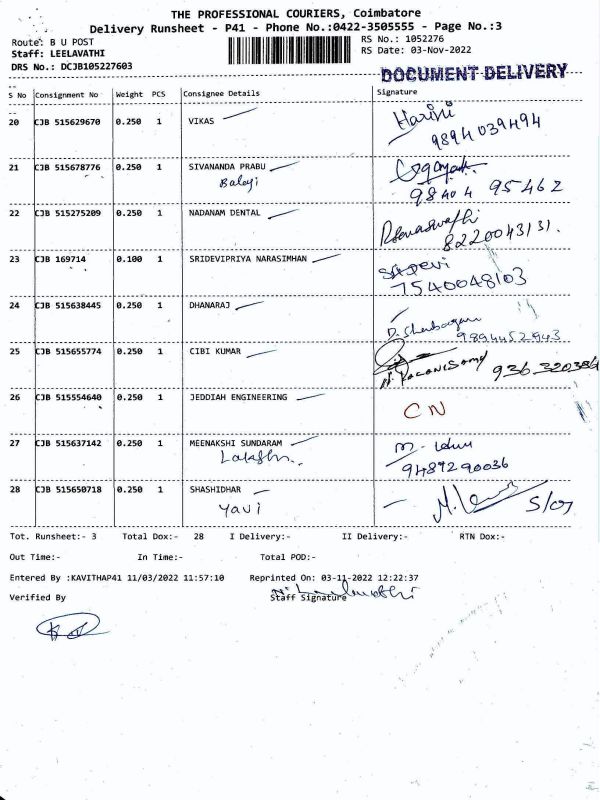 THE PROFESSIONAL COURIERS, Coimbatore
Delivery Runsheet - P41 - Phone No.:0422-3505555 - Page No.:3
Route: B U POST
RS No.: 1052276
Staff: LEELAVATHI
RS Date: 03-Nov-2022
DRS No.: DCJB105227603
DOCUMENT DELIVERY
S No Consignment No Weight PCS Consignee Details Signature
20 CJB 515629670 0.250 1 VIKAS Harini
9894039494
21 CJB 515678776 0.250 1 SIVANANDA PRABU
Balaji 98404 95462
22 CJB 515275209 0.250 1 NADANAM DENTAL
8220043131.
23 CJB 169714 0.100 1 SRIDEVIPRIYA NARASIMHAN
7540048103
24 CJB 515638445 0.250 1 DHANARAJ
9894452943
25 CJB 515655774 0.250 1 CIBI KUMAR
26 CJB 515554640 0.250 1 JEDDIAH ENGINEERING CN
27 CJB 515637142 0.250 1 MEENAKSHI SUNDARAM
9489290036
28 CJB 515650718 0.250 1 SHASHIDHAR
Yavi S/o
Tot. Runsheet:- 3 Total Dox:- 28 I Delivery:- II Delivery:- RTN Dox:-
Out Time:- In Time:- Total POD:-
Entered By :KAVITHAP41 11/03/2022 11:57:10 Reprinted On: 03-11-2022 12:22:37
Verified By Staff Signature